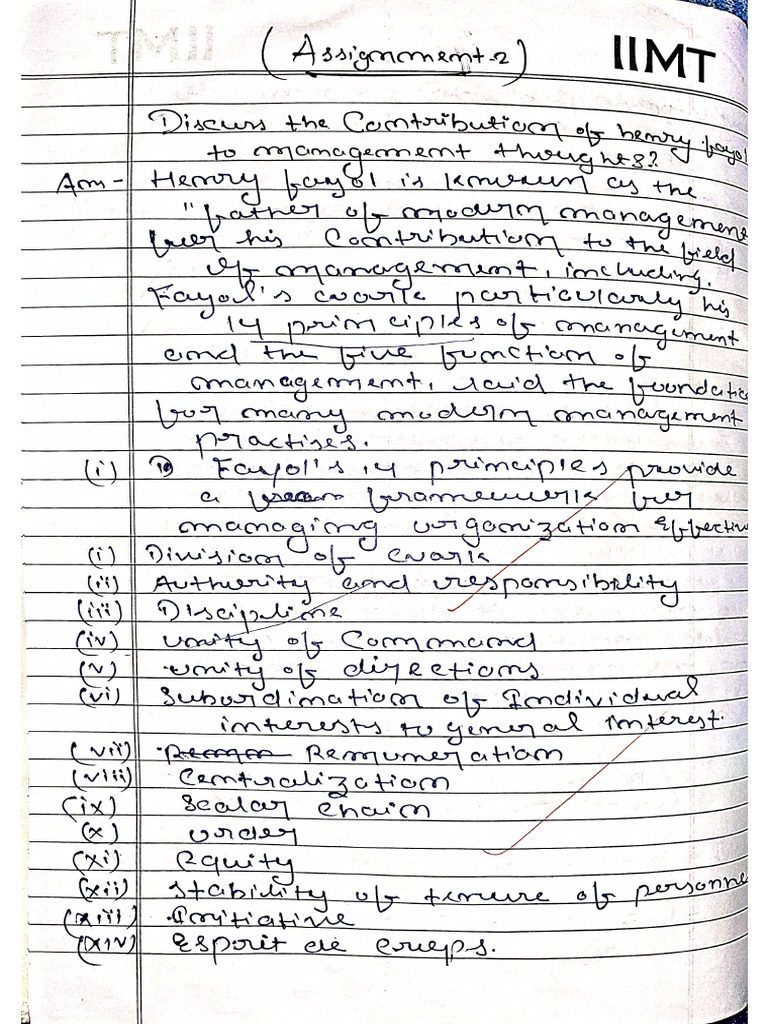 (Assignment-2)
IIMT
Discuss the Contribution of henry fayol
to management thoughts?
Ans - Henry fayol is known as the
"father of modern management
for his Contribution to the field
of management, including.
Fayol's work particularly his
14 principles of management
and the five function of
management, laid the foundatio
for many modern management
practises.
(i) Fayol's 14 principles provide
a framework for
managing organization Effectiv
(i) Division of work
(ii) Authority and responsibility
(iii) Discipline
(iv) Unity of Command
(v) Unity of directions
(vi) Subordination of Individual
interests to general interest.
(vii) Remuneration
(viii) Centralization
(ix) Scalar chain
(x) order
(xi) Equity
(xii) Stability of tenure of personne
(xiii) Initiative
(xiv) Esprit de crups.